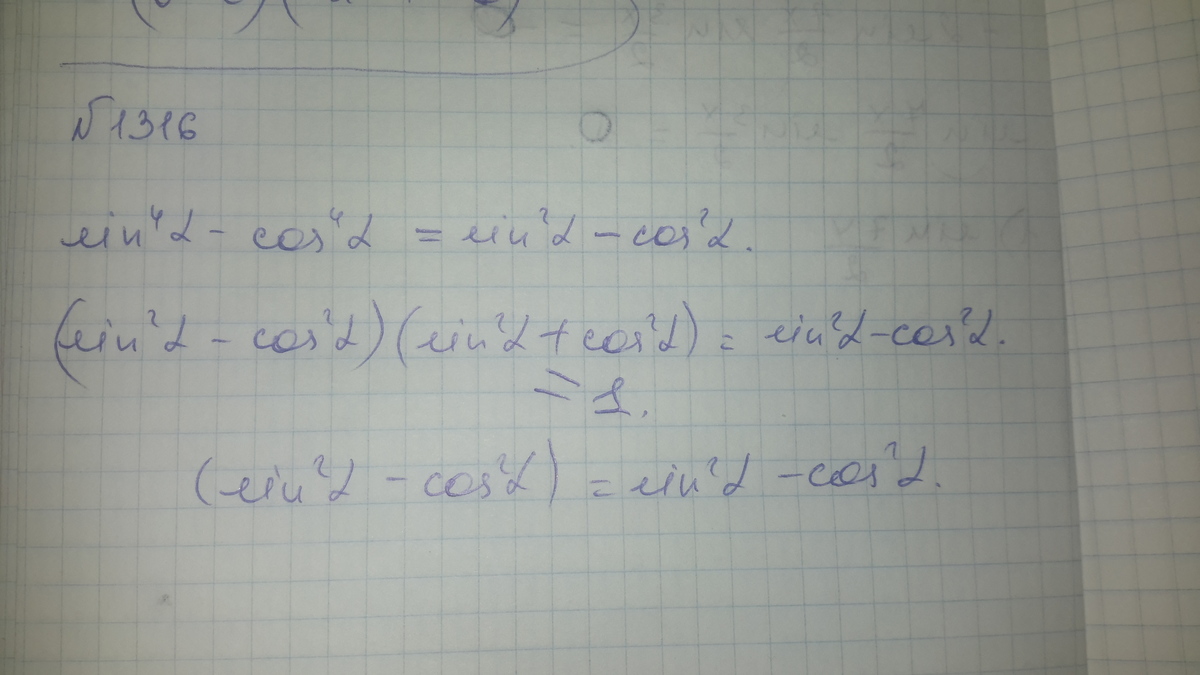 №1316
sin⁴α - cos⁴α = sin²α - cos²α.
(sin²α - cos²α)(sin²α + cos²α) = sin²α - cos²α.
= 1.
(sin²α - cos²α) = sin²α - cos²α.